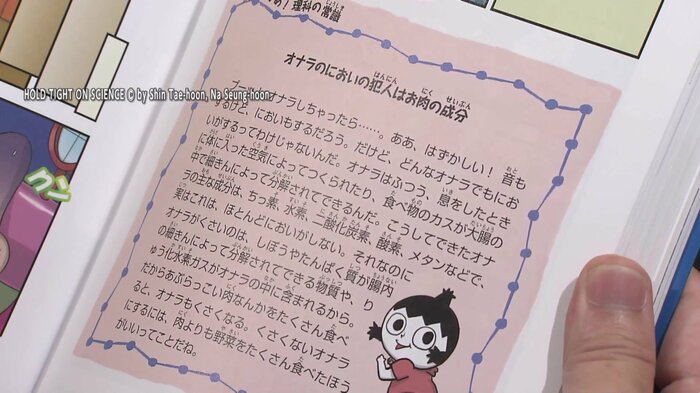 め！理科の常識
HOLD TIGHT ON SCIENCE © by Shin Tae-hoon, Na Seung-hoon
オナラのにおいの犯人はお肉の成分
プーッとオナラしちゃったら……。ああ、はずかしい！ 音も
するけど、においもするだろう。だけど、どんなオナラでもにお
いがするってわけじゃないんだ。オナラはふつう、息をしたとき
に体に入った空気によってつくられたり、食べ物のカスが大腸の
中で細きんによって分解されてできるんだ。こうしてできたオナ
ラの主な成分は、ちっ素、水素、二酸化炭素、酸素、メタンなどで、
実はこれは、ほとんどにおいがしない。それなのに
オナラがくさいのは、しぼうやたんぱく質が腸内
の細きんによって分解されてできる物質や、り
ゅう化水素ガスがオナラの中に含まれるから。
だからあぶらっこい肉なんかをたくさん食べ
ると、オナラもくさくなる。くさくないオナラ
にするには、肉よりも野菜をたくさん食べたほう
がいいってことだね。
クン